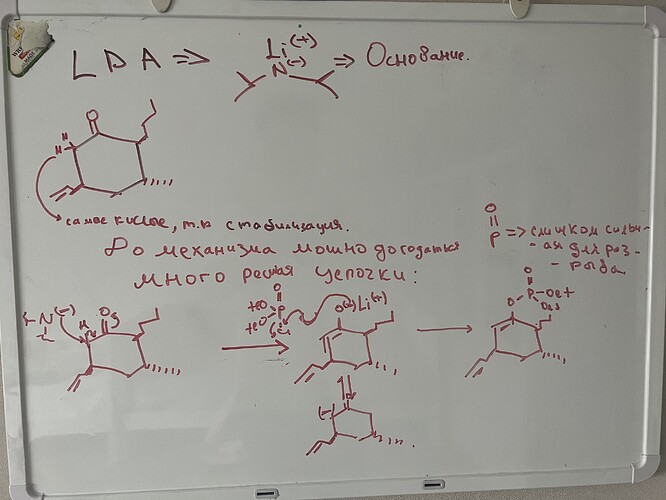 LDA ⇒ Li(+) N(-) ⇒ Основание.
O
H
H
самое кислое, т.к стабилизация.
O
P ⇒ слишком сильн-
-ая для раз-
-рыва
До механизма можно догодаться
много решая цепочки:
N(-) H O
O
EtO P
EtO Cl
O(-) Li(+)
O
O P OEt
OEt
(-)